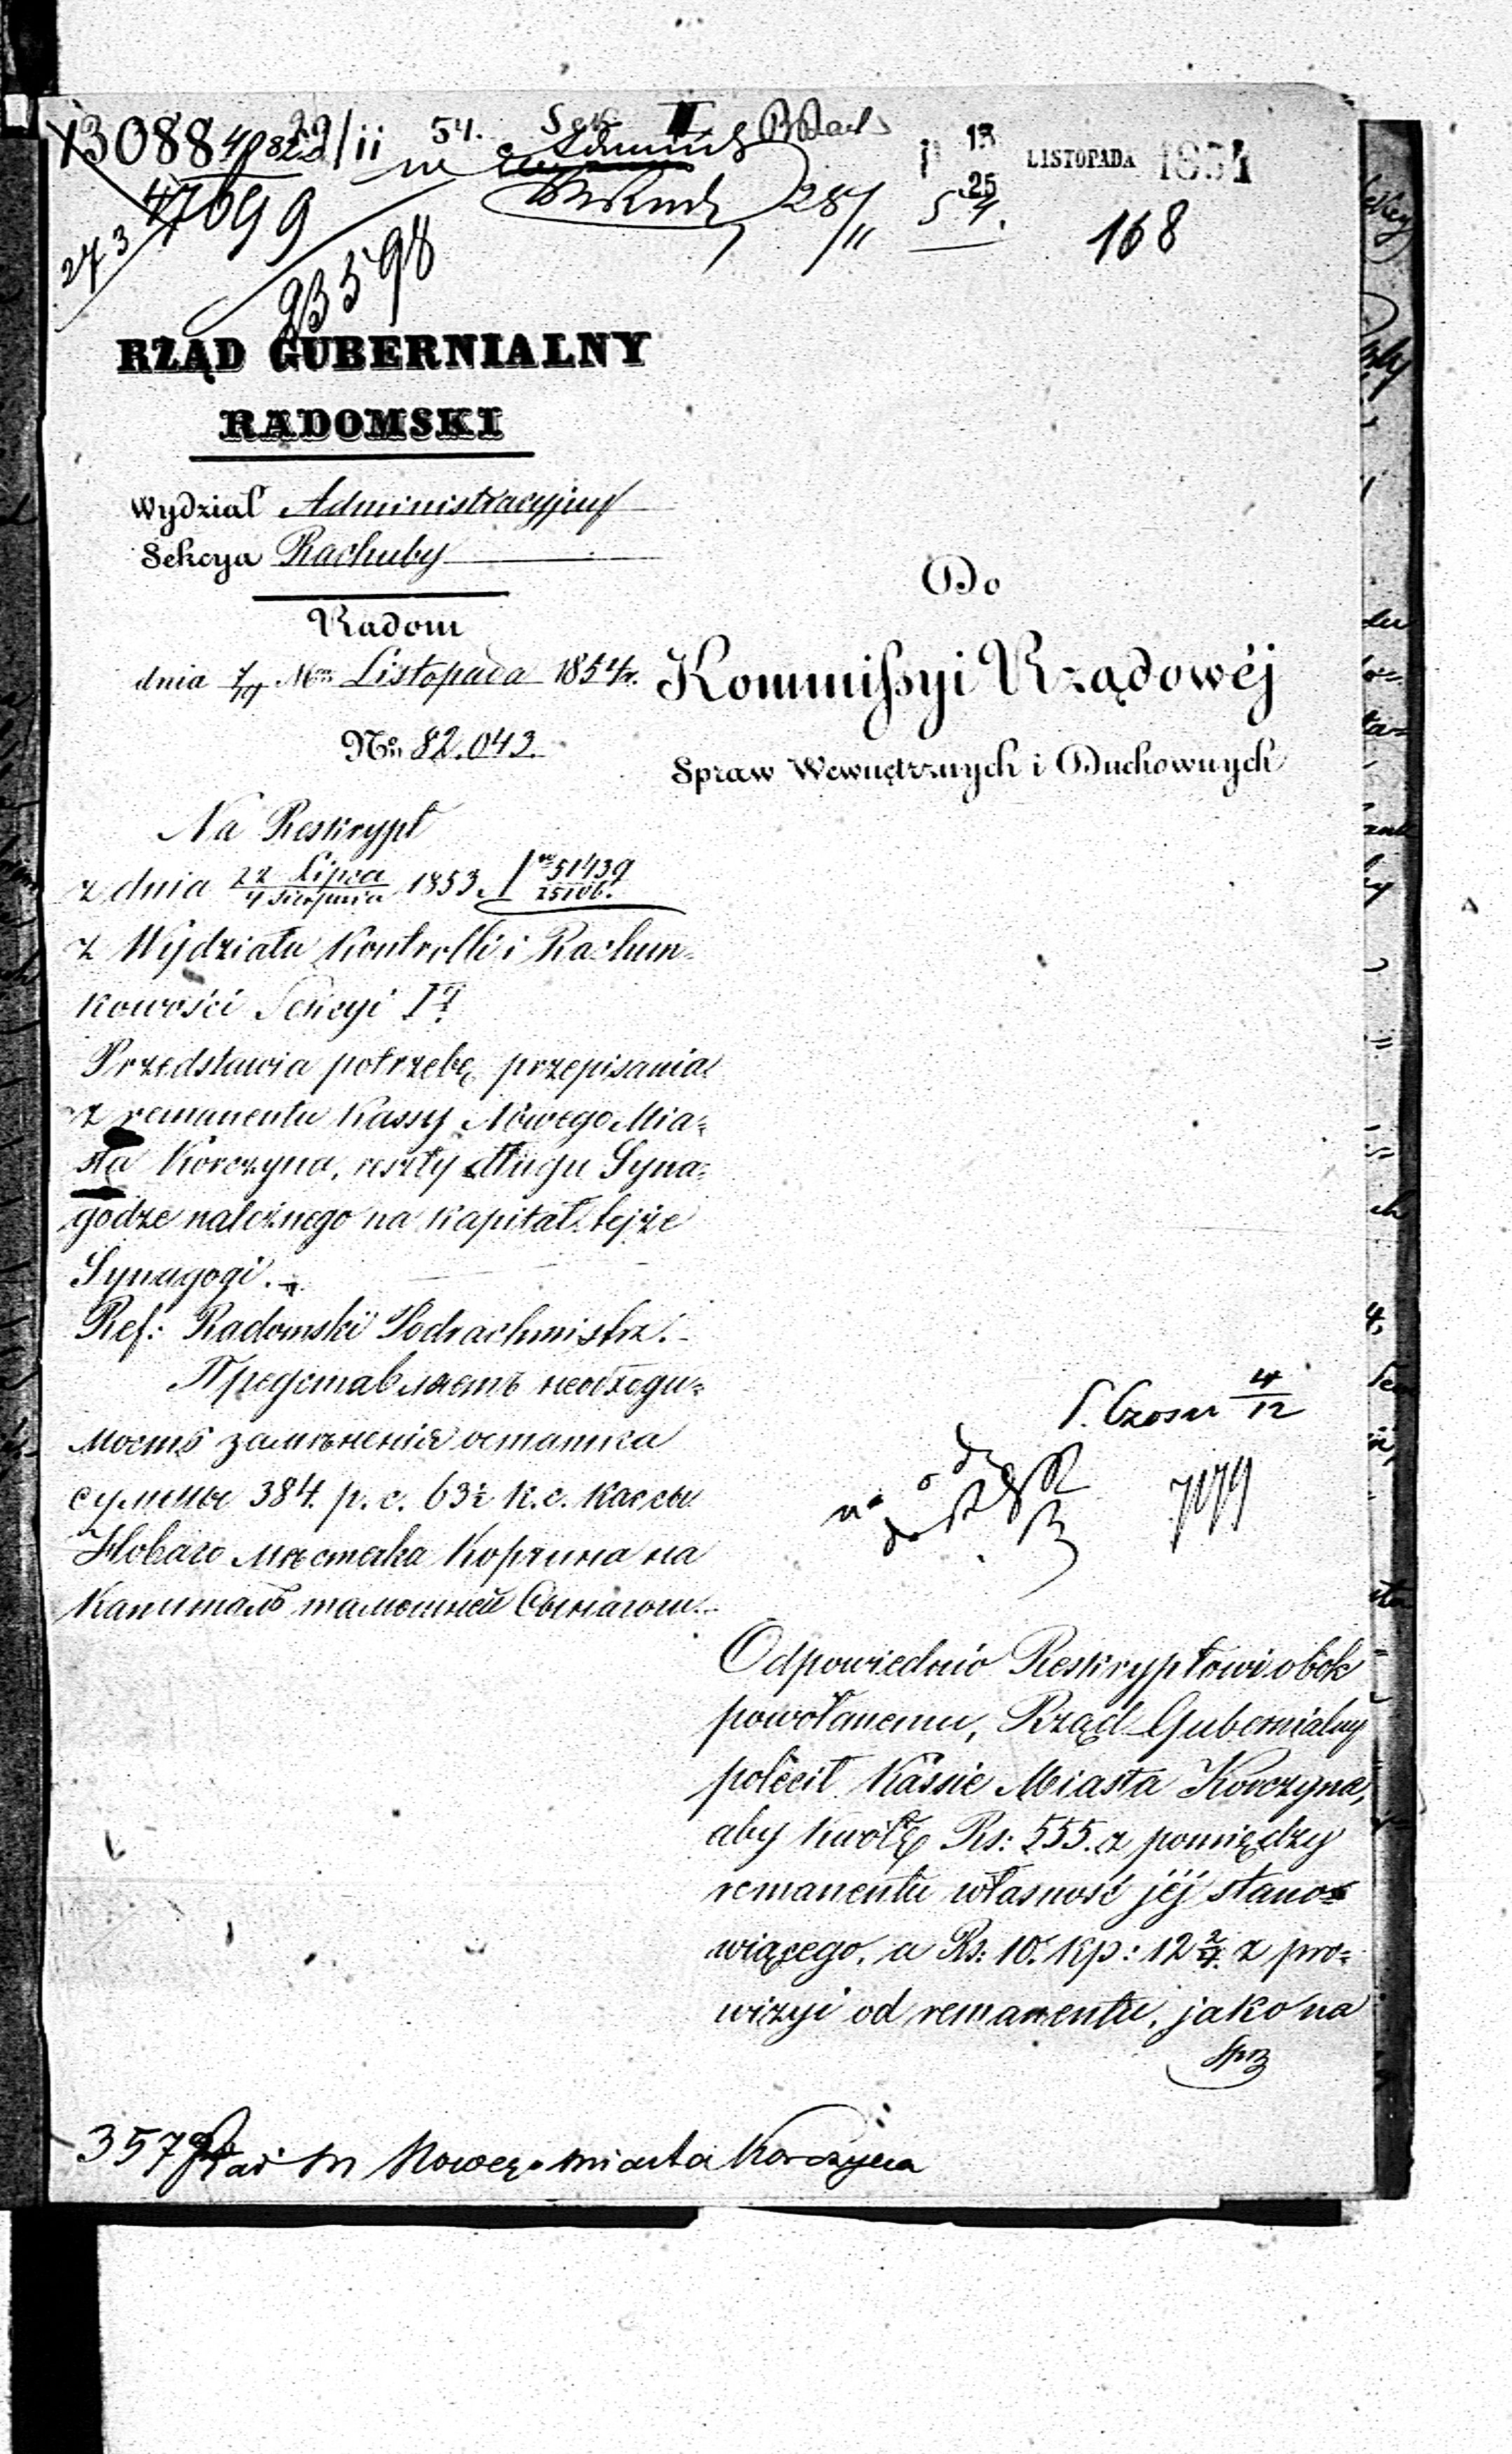 13088 29/11 54. Sek II
47699
273
23598
28/11 54.
13
25
LISTOPADA 1854
168
RZĄD GUBERNIALNY
RADOMSKI
Wydział Administracyjny
Sekcya Rachuby
Radom
dnia 7/19 Mca Listopada 1854 r.
No 82.043.
Do
Kommissyi Rządowéj
Spraw Wewnętrznych i Duchownych
Na Reskrypt
z dnia 22 Lipca / 4 Sierpnia 1853 No 51439 / 25106.
z Wydziału Kontrolli i Rachun=
kowości Sekcyi Iéj
Przedstawia potrzebę przepisania
z remanentu Kassy Nowego Mia=
sta Korczyna, reszty długu Syna=
godze należnego na kapitał tejże
Synagogi.
Ref: Radomski Podrachmistrz.
Представляетъ необходи=
мость замѣненія остатка
суммы 384. р. с. 63½ к. с. кассы
Новаго Мѣстечка Корчина на
капиталъ тамошней Сынагоги.
4/12
Odpowiednio Reskryptowi obok
powołanemu, Rząd Gubernialny
polecił Kassie Miasta Korczyna,
aby kwotę Rs: 555. z pomiędzy
remanentu własność jéj stano=
wiącego, a Rs: 10. kp: 12 2/4 z pro=
wizyi od remanentu, jako na
3579 Nowego miasta Korczyna